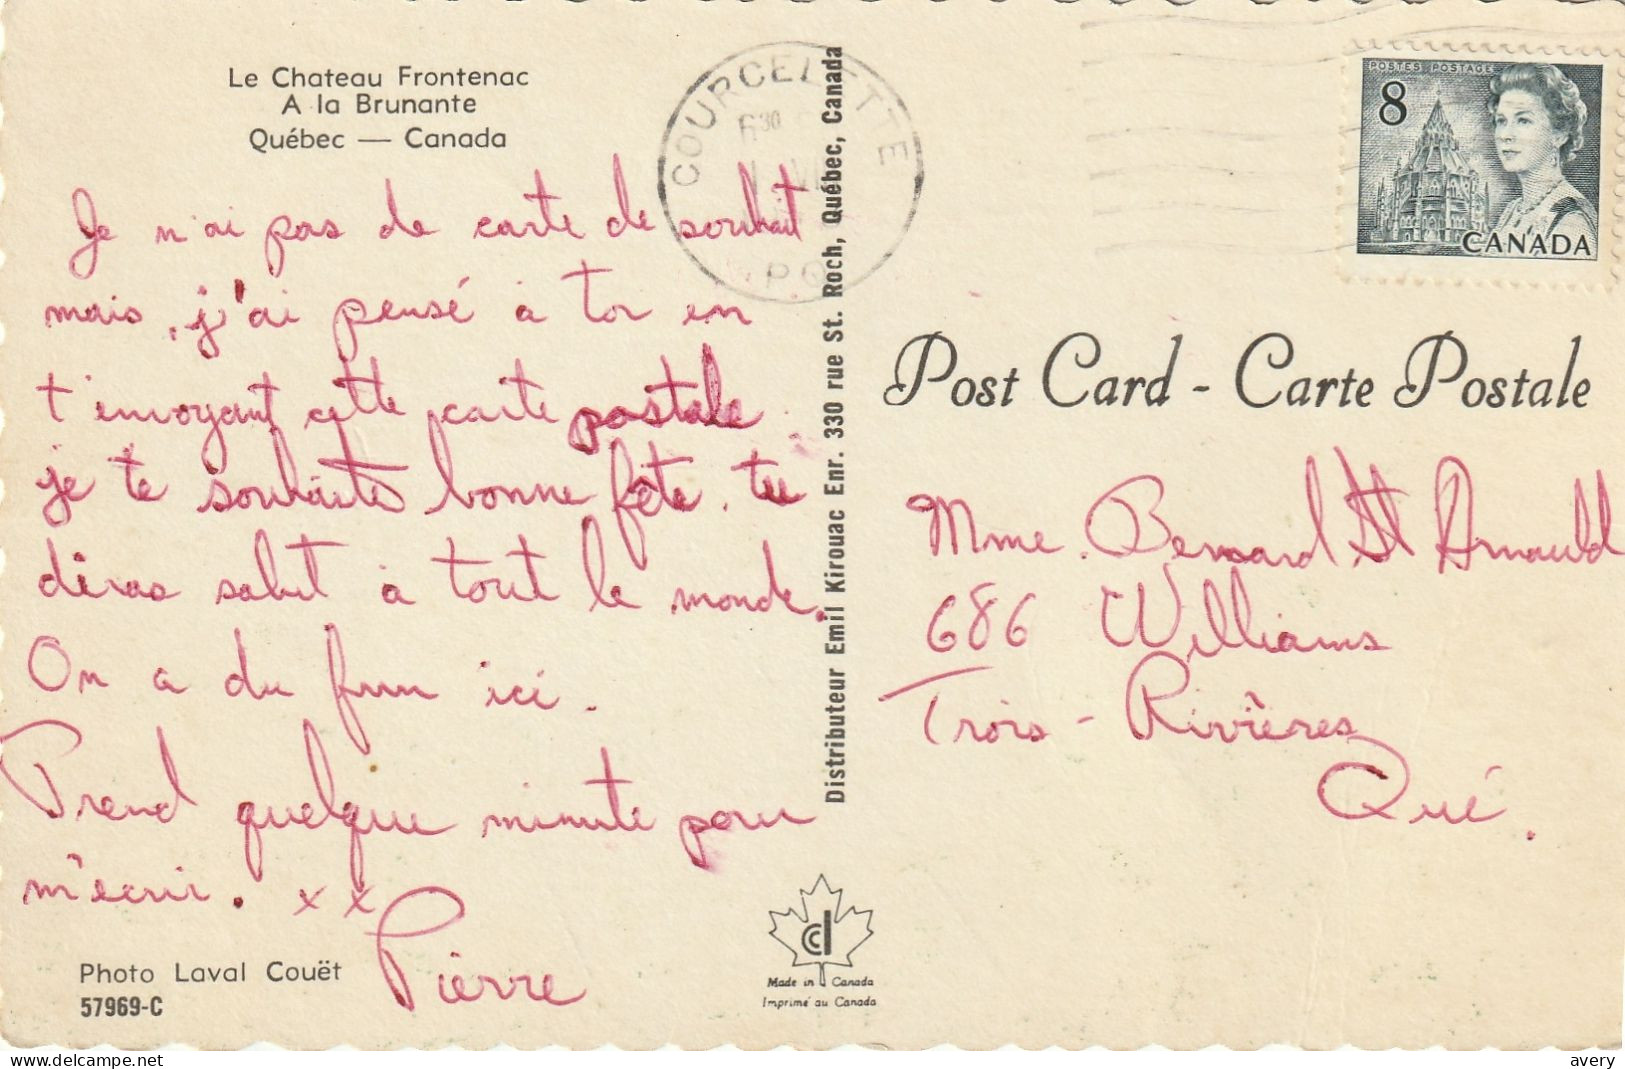 Le Chateau Frontenac
A la Brunante
Québec — Canada
Je n'ai pas de carte de souhait
mais, j'ai pensé à toi en
t'envoyant cette carte postale
je te souhaite bonne fête. tu
diras salut à tout le monde.
On a du fun ici.
Prend quelque minute pour
m'écrir. x x
Pierre
Photo Laval Couët
57969-C
COURCELETTE
P.Q.
Distributeur Emil Kirouac Enr. 330 rue St. Roch, Québec, Canada
POSTES POSTAGE
8
CANADA
Post Card - Carte Postale
Mme. Bernard St Arnauld
686 Williams
Trois-Rivières
Qué.
Made in Canada
Imprimé au Canada
delcampe.net
avery